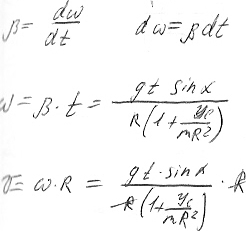 β = dω/dt    dω = β dt
ω = β · t = gt sin α / R(1 + Jc/mR²)
v = ω · R = gt · sin α / R(1 + Jc/mR²) · R